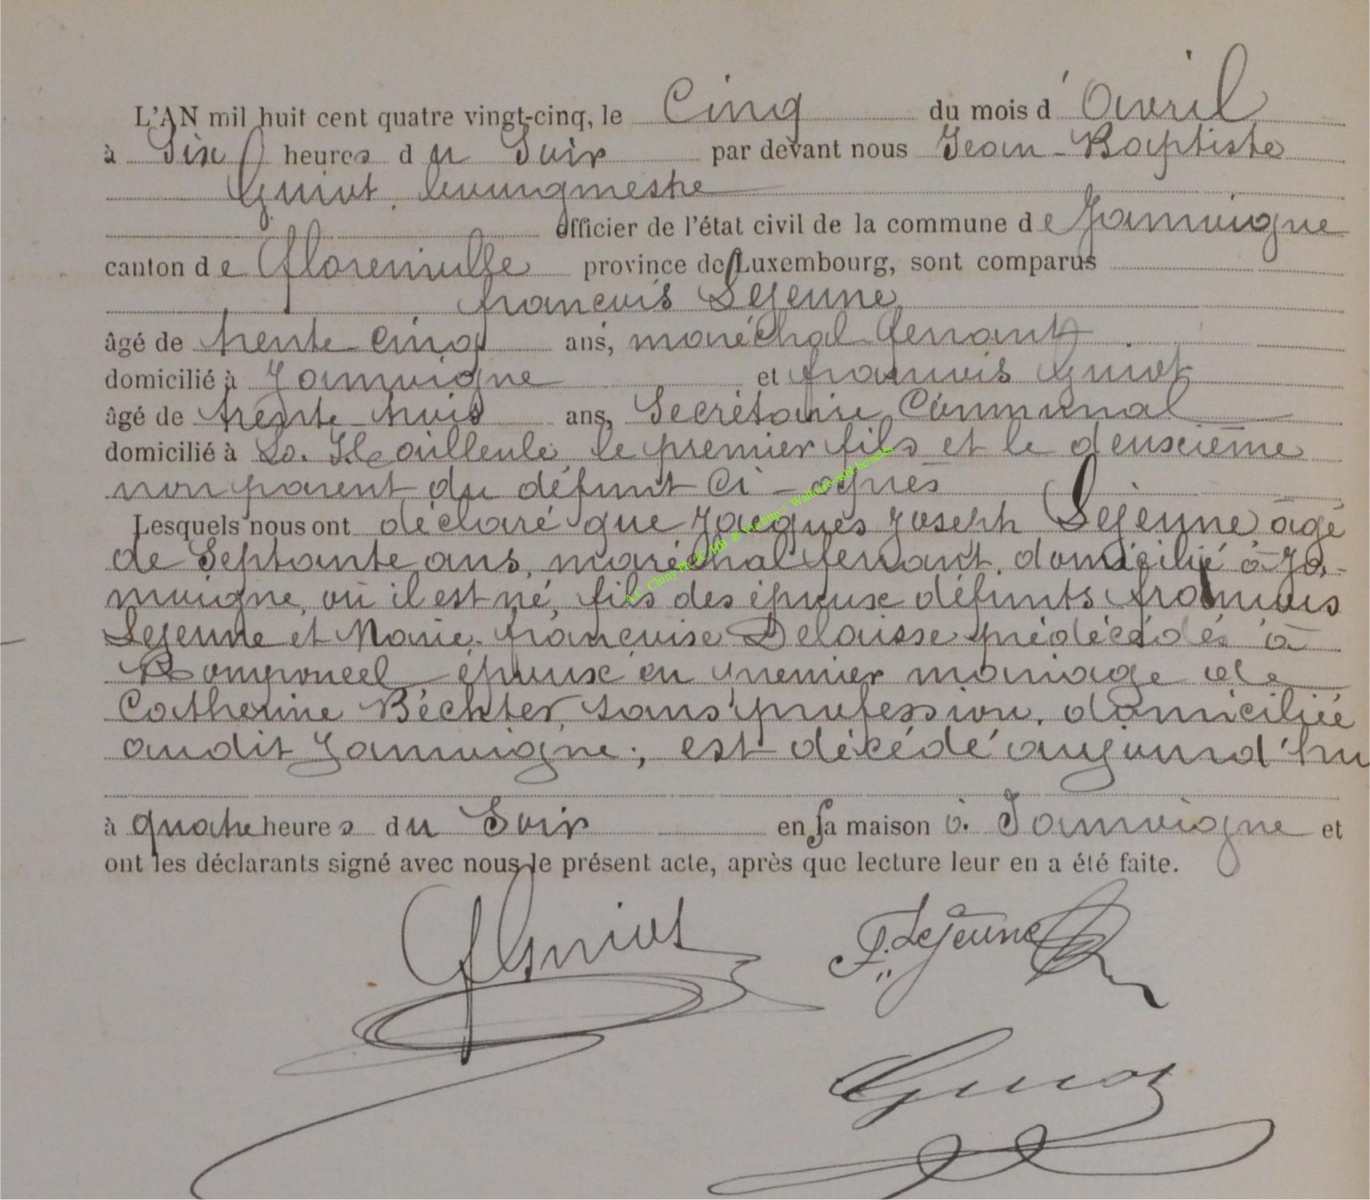 L'AN mil huit cent quatre vingt-cinq, le Cinq du mois d'Avril
à Six heures du Soir par devant nous Jean-Baptiste
Guiot, bourgmestre
officier de l'état civil de la commune de Jamoigne
canton de Florenville province de Luxembourg, sont comparus
françois Lejeune,
âgé de trente cinq ans, maréchal ferrant
domicilié à Jamoigne et françois Guiot
âgé de trente trois ans, Secrétaire Communal
domicilié à La le premier fils et le deuxcième
non parent du défunt Ci-après
Lesquels nous ont déclaré que Jacques Joseph Lejeune âgé
de Septante ans, maréchal ferrant, domicilié à Ja-
moigne, où il est né, fils des épouse défunts françois
Lejeune et Marie-françoise Delaisse prédécédés à
Romponcel époux en premier mariage de
Catherine Béchter, sans profession, domiciliée
audit Jamoigne; est décédé aujourd'hu
à quatre heures du Soir en sa maison à Jamoigne et
ont les déclarants signé avec nous le présent acte, après que lecture leur en a été faite.
Guiot F. Lejeune
Guiot